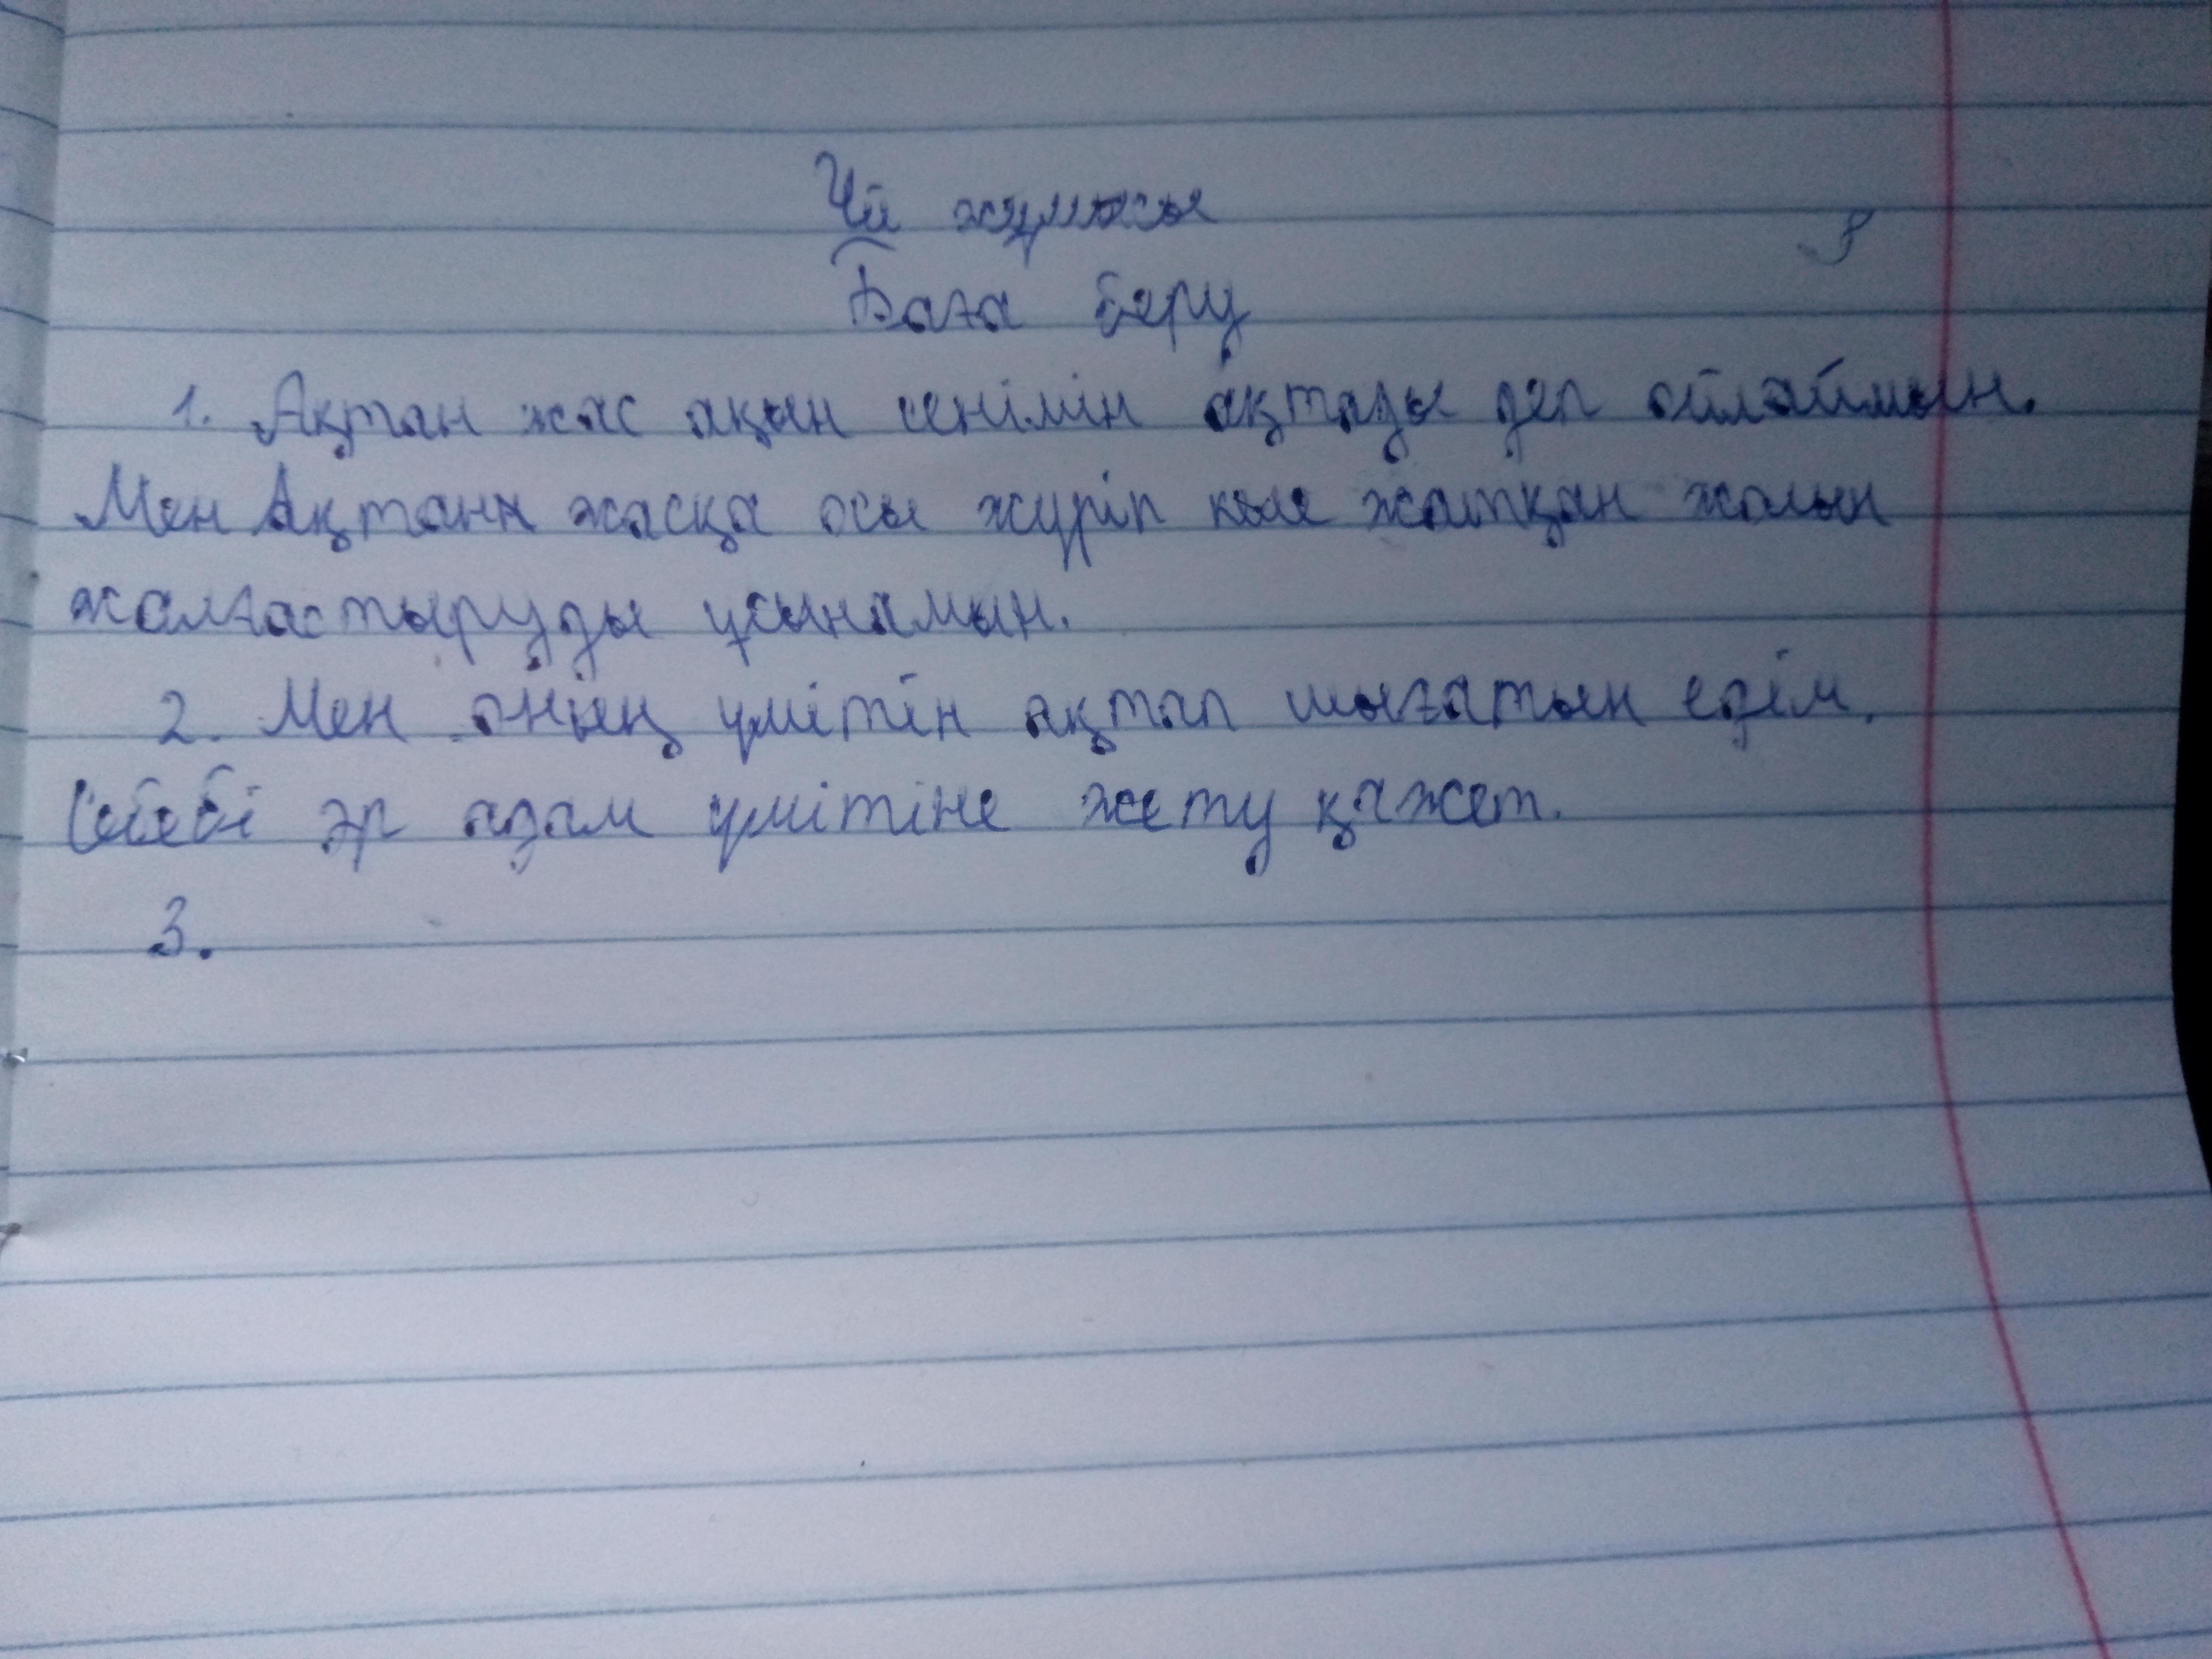 Үй жұмысы
Баға беру
1. Ақтан жас ақын сенімін ақтады деп ойлаймын.
Мен Ақтанн жасқа осы жүріп келе жатқан жолын
жалғастыруды ұсынамын.
2. Мен оның үмітін ақтап шығатын едім.
Себебі әр адам үмітіне жету қажет.
3.